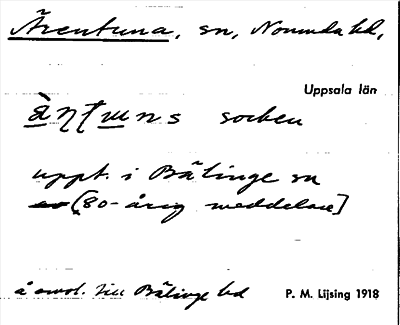 Ärentuna, sn, Norunda hd,
Uppsala län
ä̀ṇṭuns socken
uppt. i Bälinge sn
(80-årig meddelare]
å omsl. till Bälinge hd P. M. Lijsing 1918